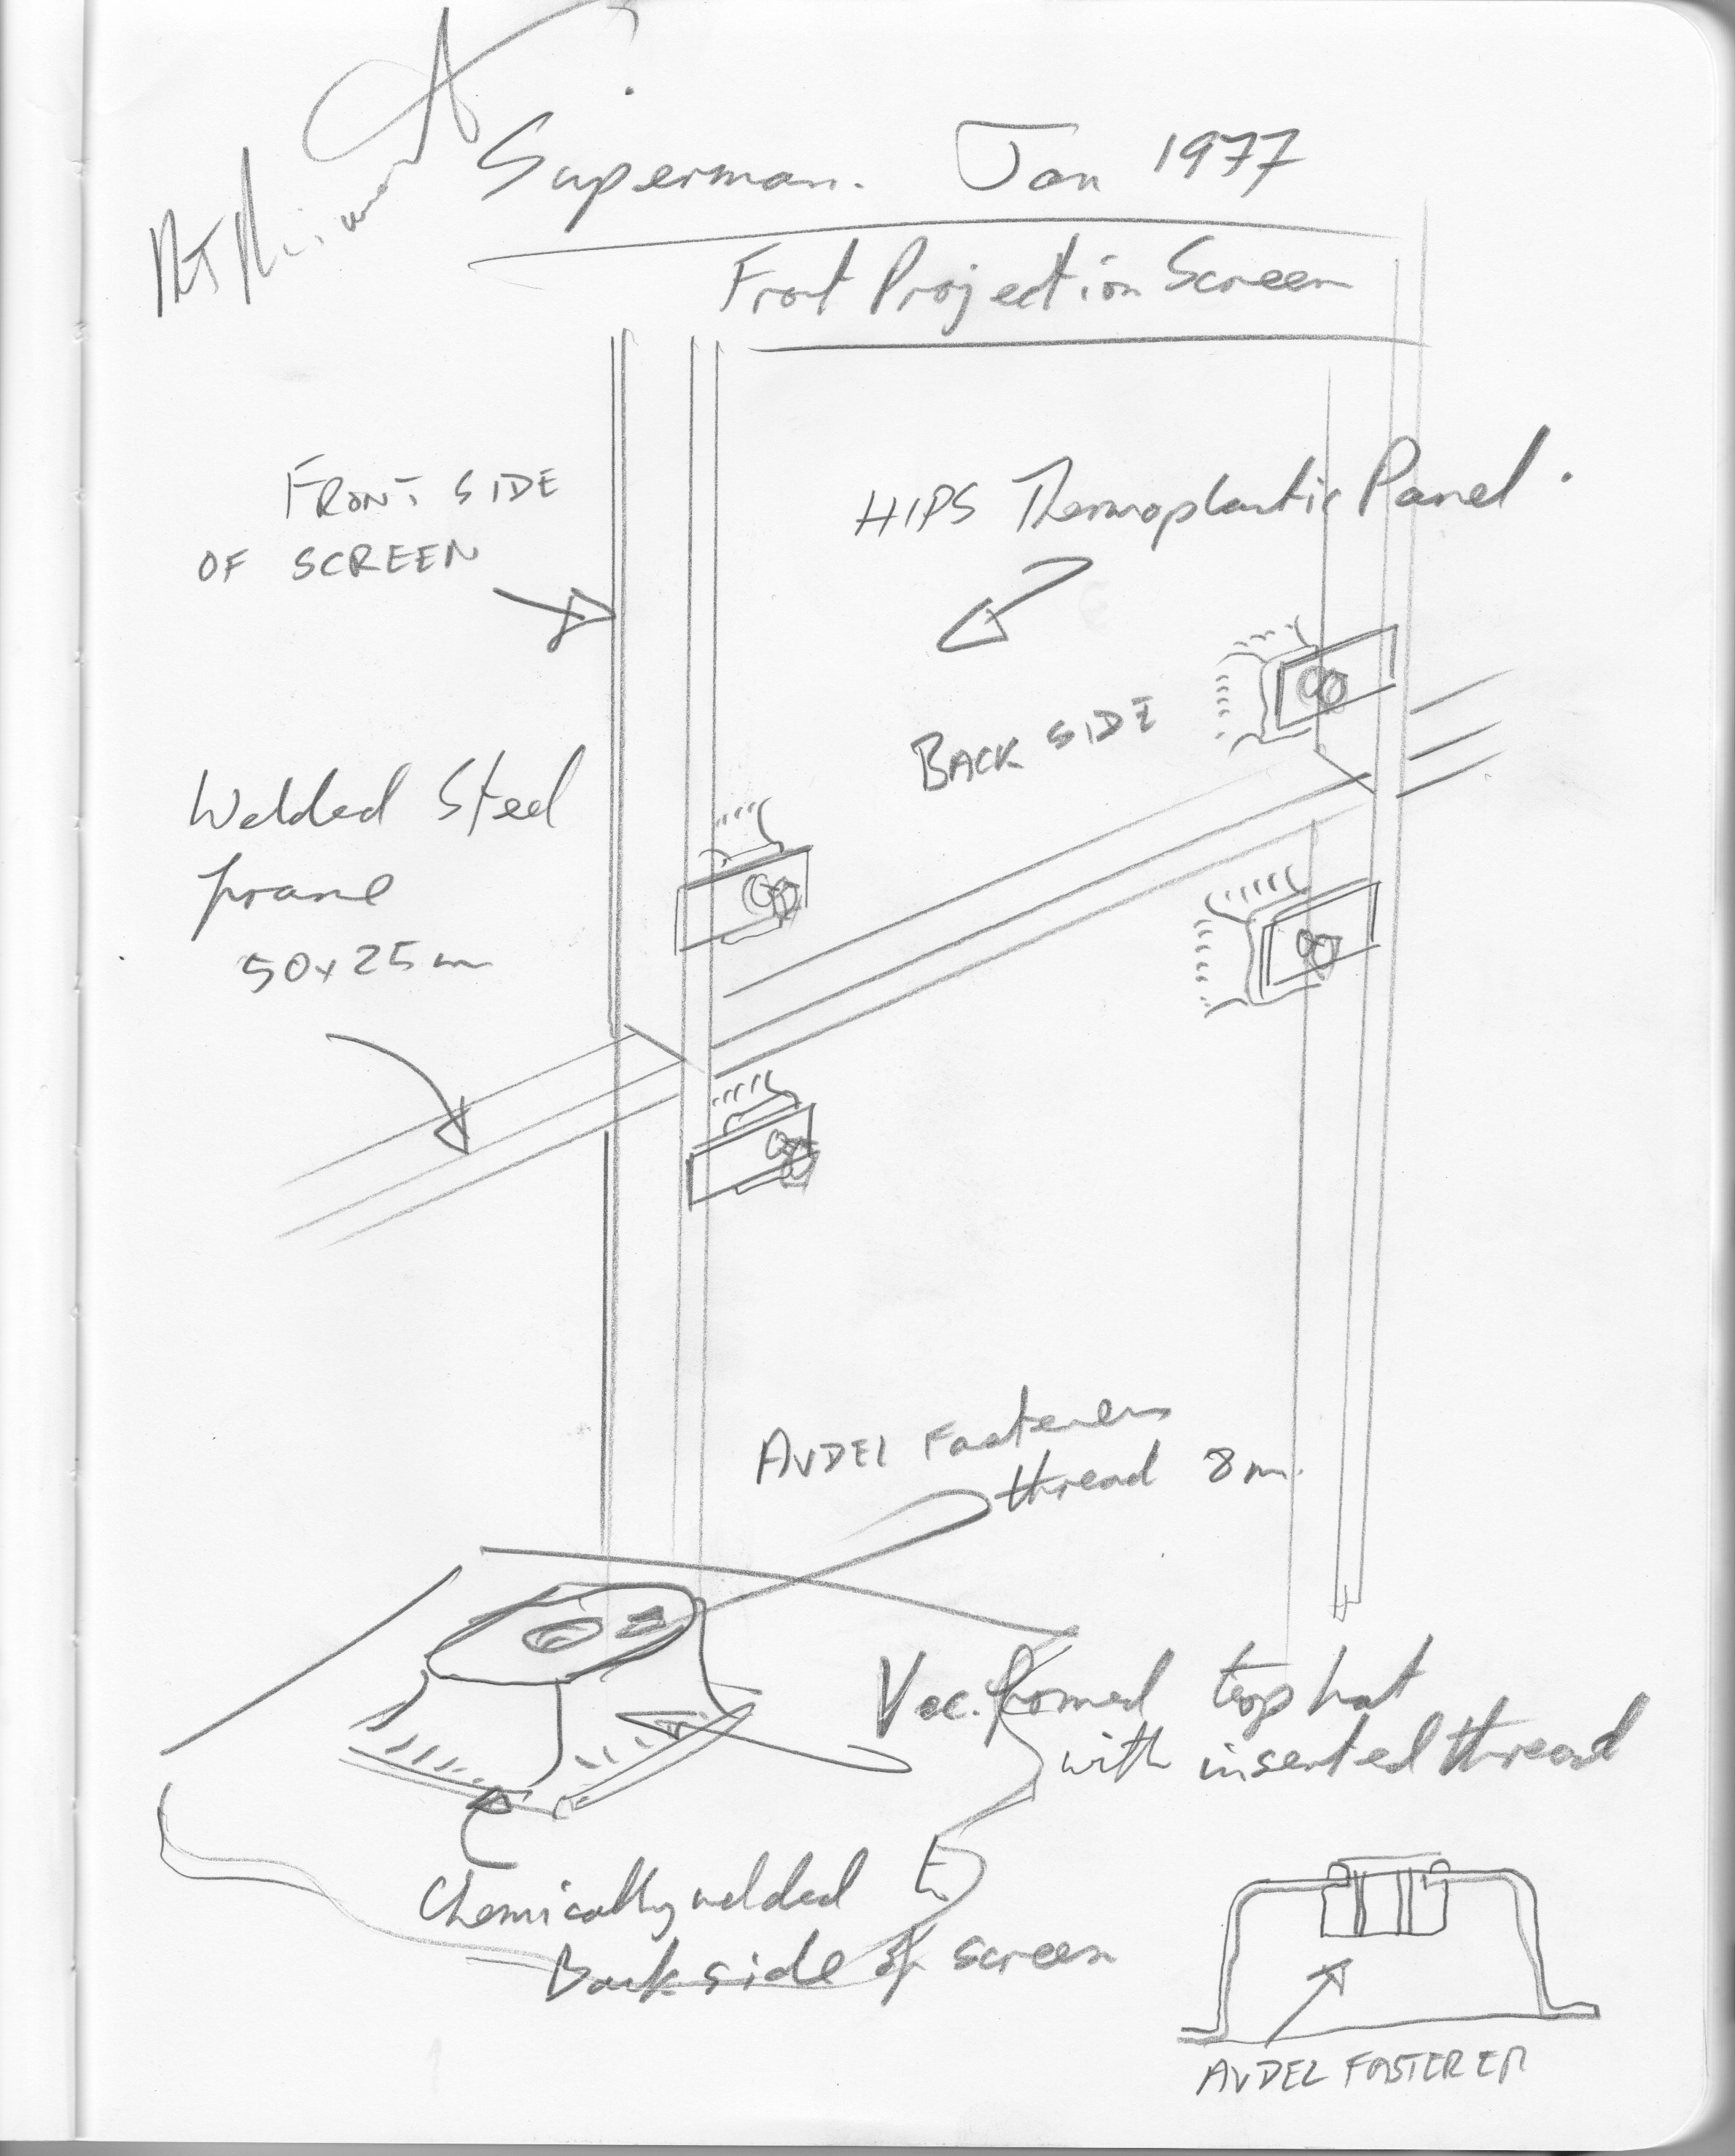 Superman. Jan 1977
Front Projection Screen
FRONT SIDE
OF SCREEN
HIPS Thermoplastic Panel.
BACK SIDE
Welded Steel
frame
50x25m
AVDEL Fasteners
thread 8m.
Vac. formed top hat
with inserted thread
Chemically welded
Back side of screen
AVDEL FASTERER